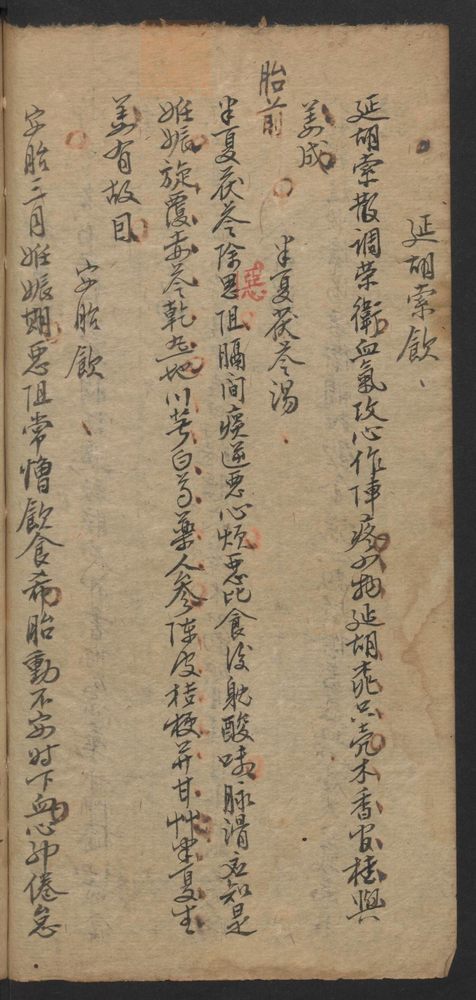 延胡索飲
延胡索散調榮衛血氣攻心作陣疼四物延胡桃只壳木香官桂與
姜成
胎前
半夏茯苓湯
半夏茯苓除惡阻膈間痰逆惡心煩惡聞食後躭酸味脉滑方知是
妊娠旋覆赤苓乾地川芎白芍藥人參陳皮桔梗并甘艸半夏生
姜有故因
安胎飲
安胎三月妊娠期惡阻常憎飲食希胎動不安时下血心中倦怠